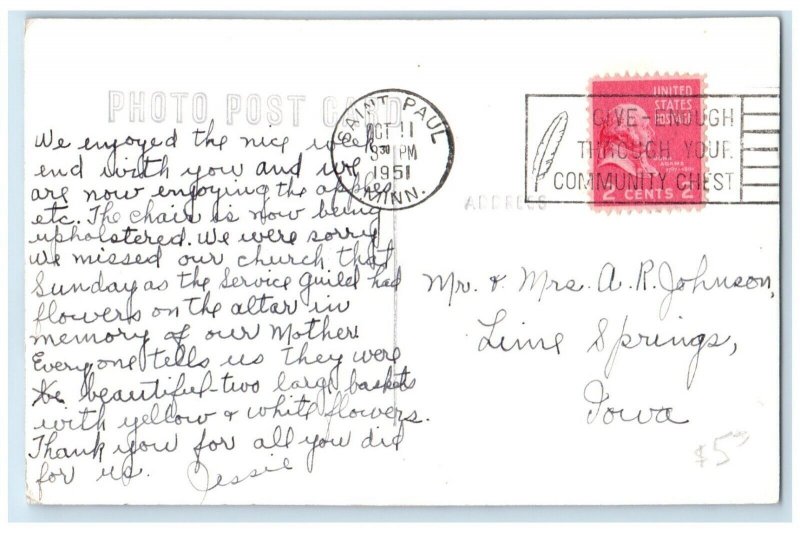 PHOTO POST CARD
We enjoyed the nice week
end with you and we
are now enjoying the apples
etc. The chair is now being
upholstered. We were sorry
we missed our church that
Sunday as the Service Guild had
flowers on the altar in
memory of our Mother.
Every one tells us they were
beautiful-two large baskets
with yellow & white flowers.
Thank you for all you did
for us. Jessie
SAINT PAUL
OCT 11
9 30 PM
1951
MINN.
GIVE-ENOUGH
THROUGH YOUR
COMMUNITY CHEST
UNITED
STATES
POSTAGE
JOHN ADAMS
2 CENTS 2
ADDRESS
Mr. & Mrs. A. R. Johnson,
Lime Springs,
Iowa
$5⁰⁰